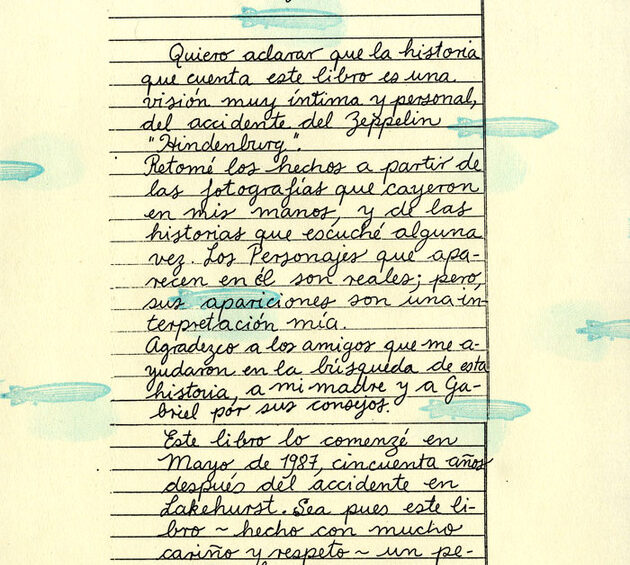 Quiero aclarar que la historia
que cuenta este libro es una
visión muy íntima y personal,
del accidente del Zeppelin
"Hindenburg".
Retomé los hechos a partir de
las fotografías que cayeron
en mis manos, y de las
historias que escuché alguna
vez. Los Personajes que apa-
recen en él son reales; pero,
sus apariciones son una in-
terpretación mía.
Agradezco a los amigos que me a-
yudaron en la búsqueda de esta
historia, a mi madre y a Ga-
briel por sus consejos.
Este libro lo comenzé en
Mayo de 1987, cincuenta años
después del accidente en
Lakehurst. Sea pues este li-
bro ~ hecho con mucho
cariño y respeto ~ un pe-